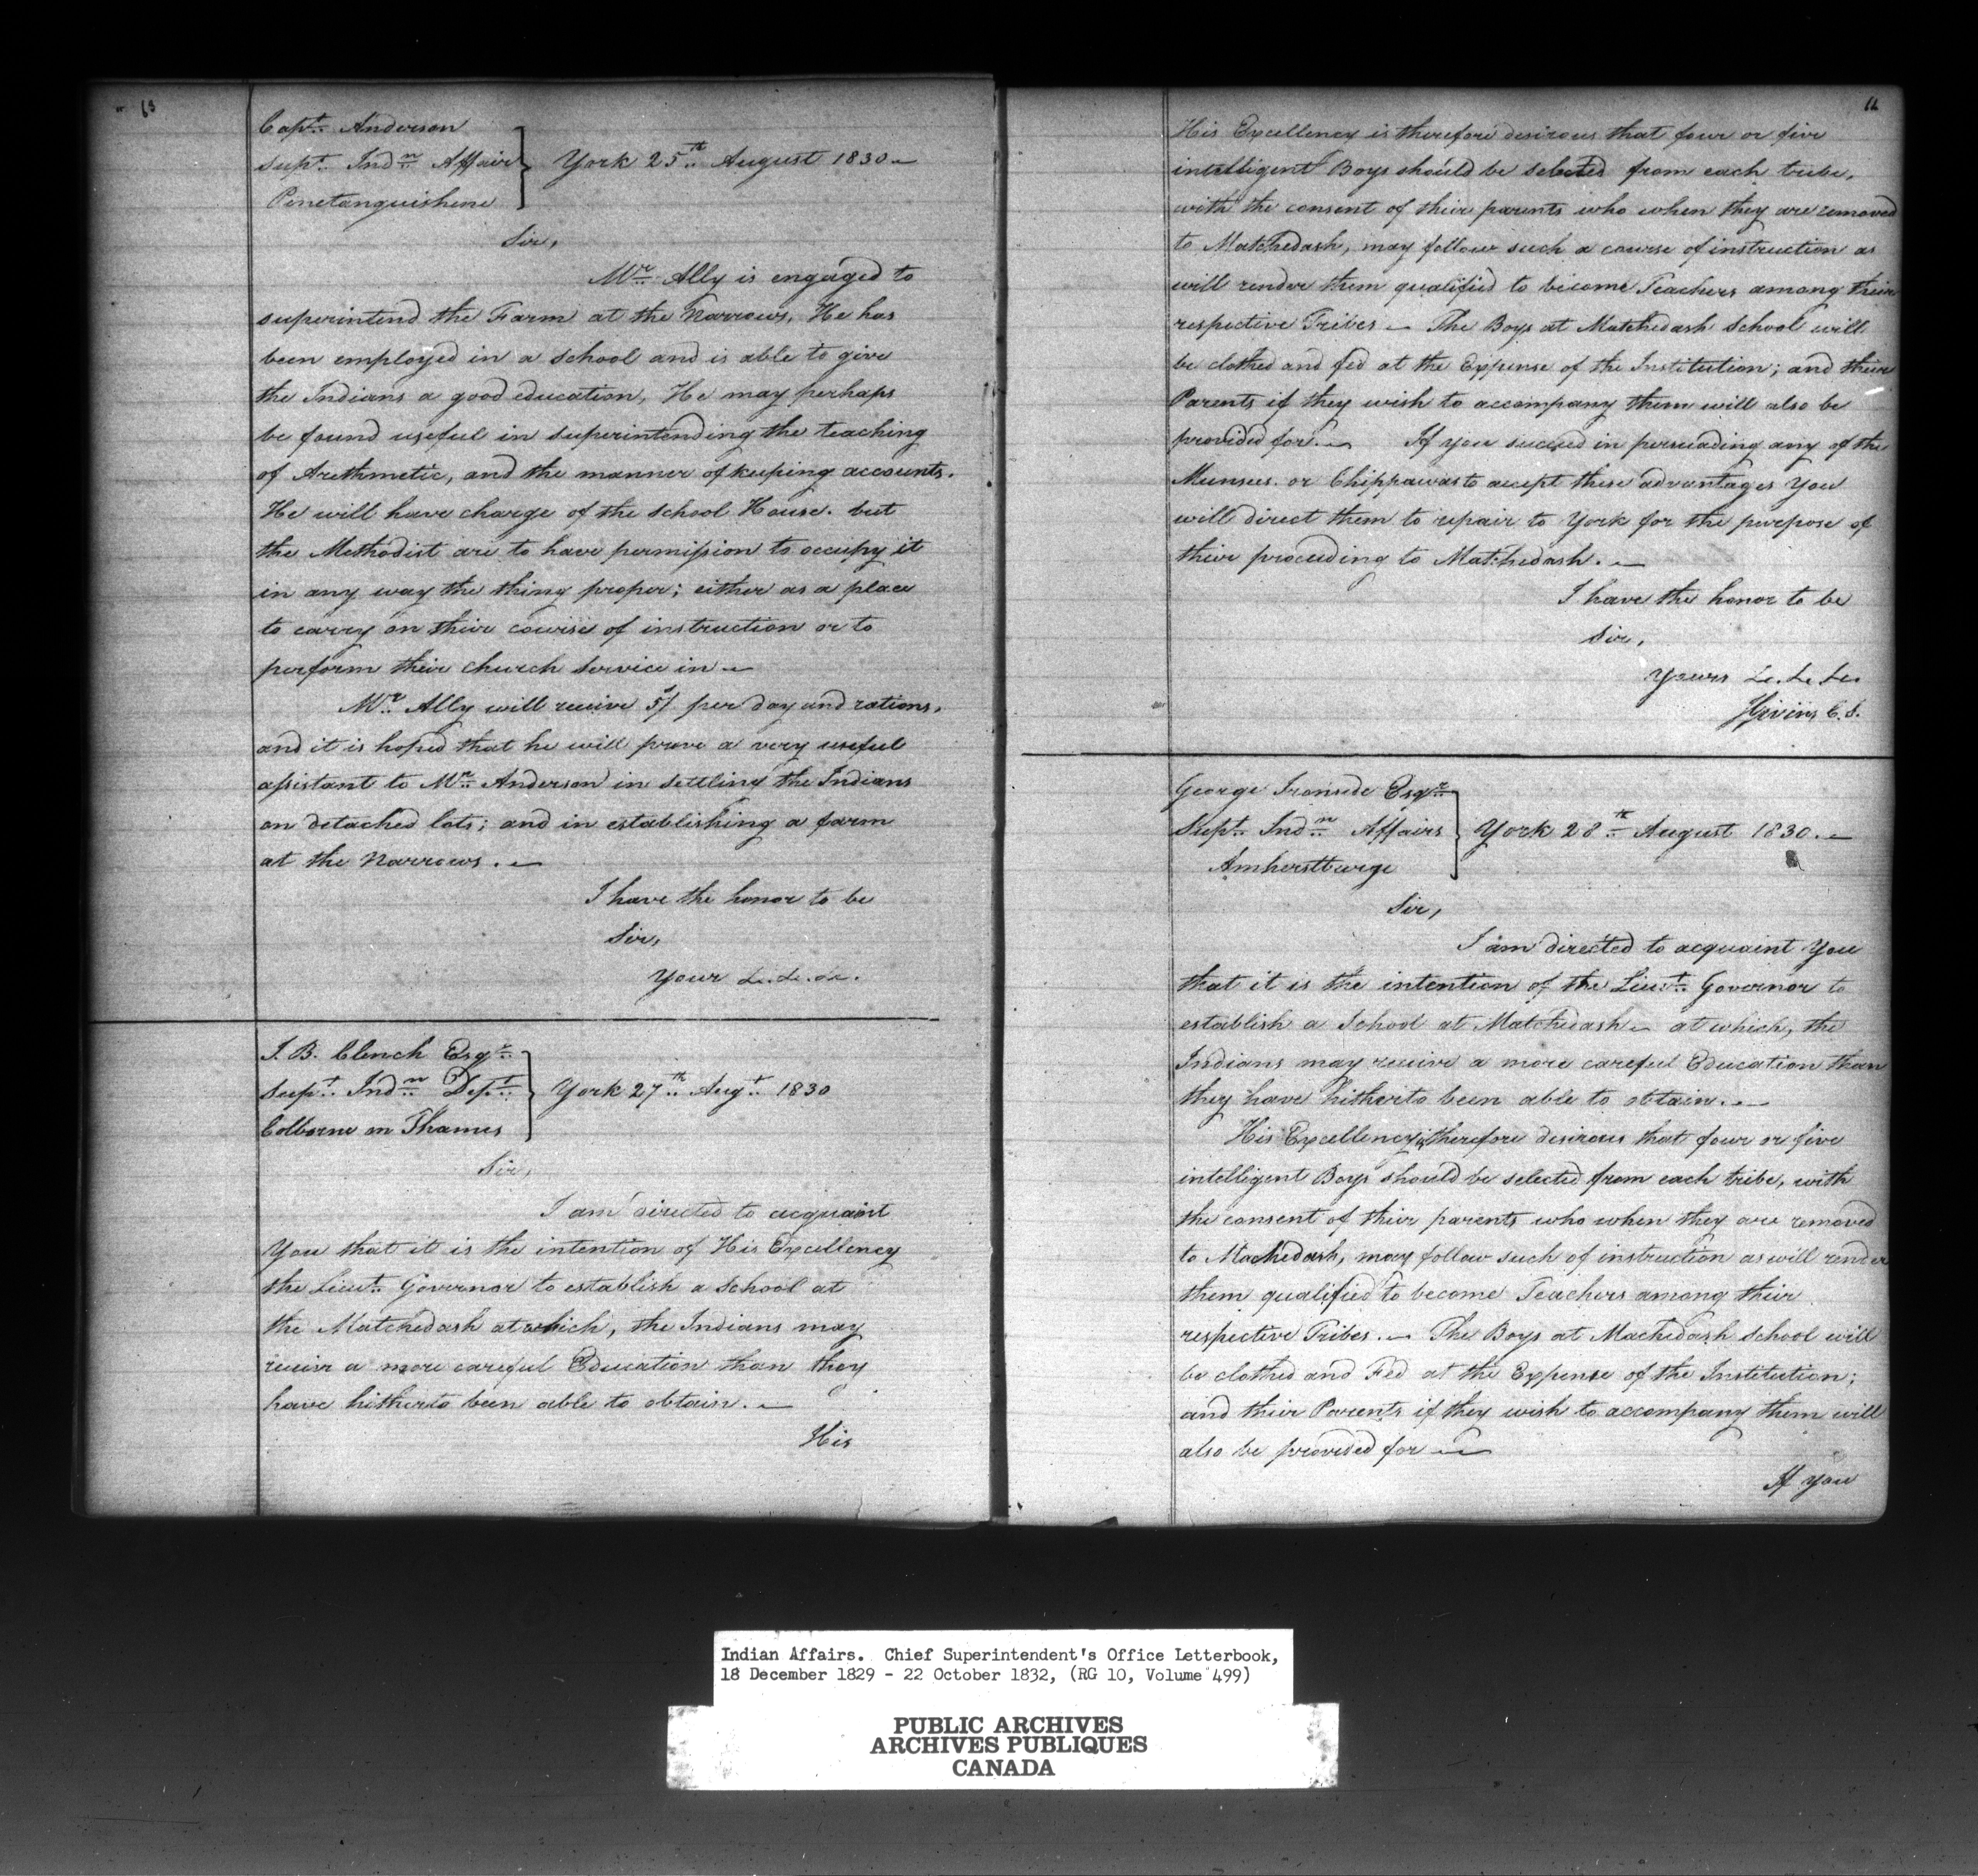 63
Capt. Anderson
Supt. Indn Affairs
Penetanguishene
York 25th August 1830
Sir,
Mr. Ally is engaged to
superintend the Farm at the Narrows, He has
been employed in a School and is able to give
the Indians a good education, He may perhaps
be found useful in superintending the teaching
of Arethmetic, and the manner of keeping accounts.
He will have charge of the School House. but
the Methodist are to have permission to occupy it
in any way the thing proper; either as a place
to carry on their course of instruction or to
perform their church service in
Mr. Ally will receive 5/ per day and rations,
and it is hoped that he will prove a very useful
assistant to Mr. Anderson in settling the Indians
on detached lots; and in establishing a farm
at the Narrows.
I have the honor to be
Sir,
Your &c. &c. &c.
J. B. Clench Esqr.
Supt. Indn Dept.
Colborne on Thames
York 27th Augt. 1830
Sir,
I am directed to acquaint
You that it is the intention of His Excellency
the Lieut. Governor to establish a School at
the Matchedash at which, the Indians may
receive a more careful Education than they
have hitherto been able to obtain.
His
His Excellency is therefore desirous that four or five
intelligent Boys should be selected from each tribe,
with the consent of their parents who when they are removed
to Matchedash, may follow such a course of instruction as
will render them qualified to become Teachers among their
respective Tribes - The Boys at Matchedash School will
be clothed and fed at the Expense of the Institution; and their
Parents if they wish to accompany them will also be
provided for. If you succeed in persuading any of the
Munsees. or Chippawas to accept these advantages You
will direct them to repair to York for the purpose of
their proceeding to Matchedash.
I have the honor to be
Sir,
Yours &c. &c. &c.
J Givins C.S.
George Ironside Esqr.
Supt. Indn Affairs
Amherstburge
York 28th August 1830.
Sir,
I am directed to acquaint You
that it is the intention of the Lieut. Governor to
establish a School at Matchedash at which, the
Indians may receive a more careful Education than
they have hitherto been able to obtain.
His Excellency is therefore desirous that four or five
intelligent Boys should be selected from each tribe, with
the consent of their parents who when they are removed
to Machedash, may follow such of instruction as will render
them qualified to become Teachers among their
respective Tribes. The Boys at Machedash School will
be clothed and Fed at the Expense of the Institution;
and their Parents if they wish to accompany them will
also be provided for
If You
Indian Affairs. Chief Superintendent's Office Letterbook,
18 December 1829 - 22 October 1832, (RG 10, Volume 499)
PUBLIC ARCHIVES
ARCHIVES PUBLIQUES
CANADA